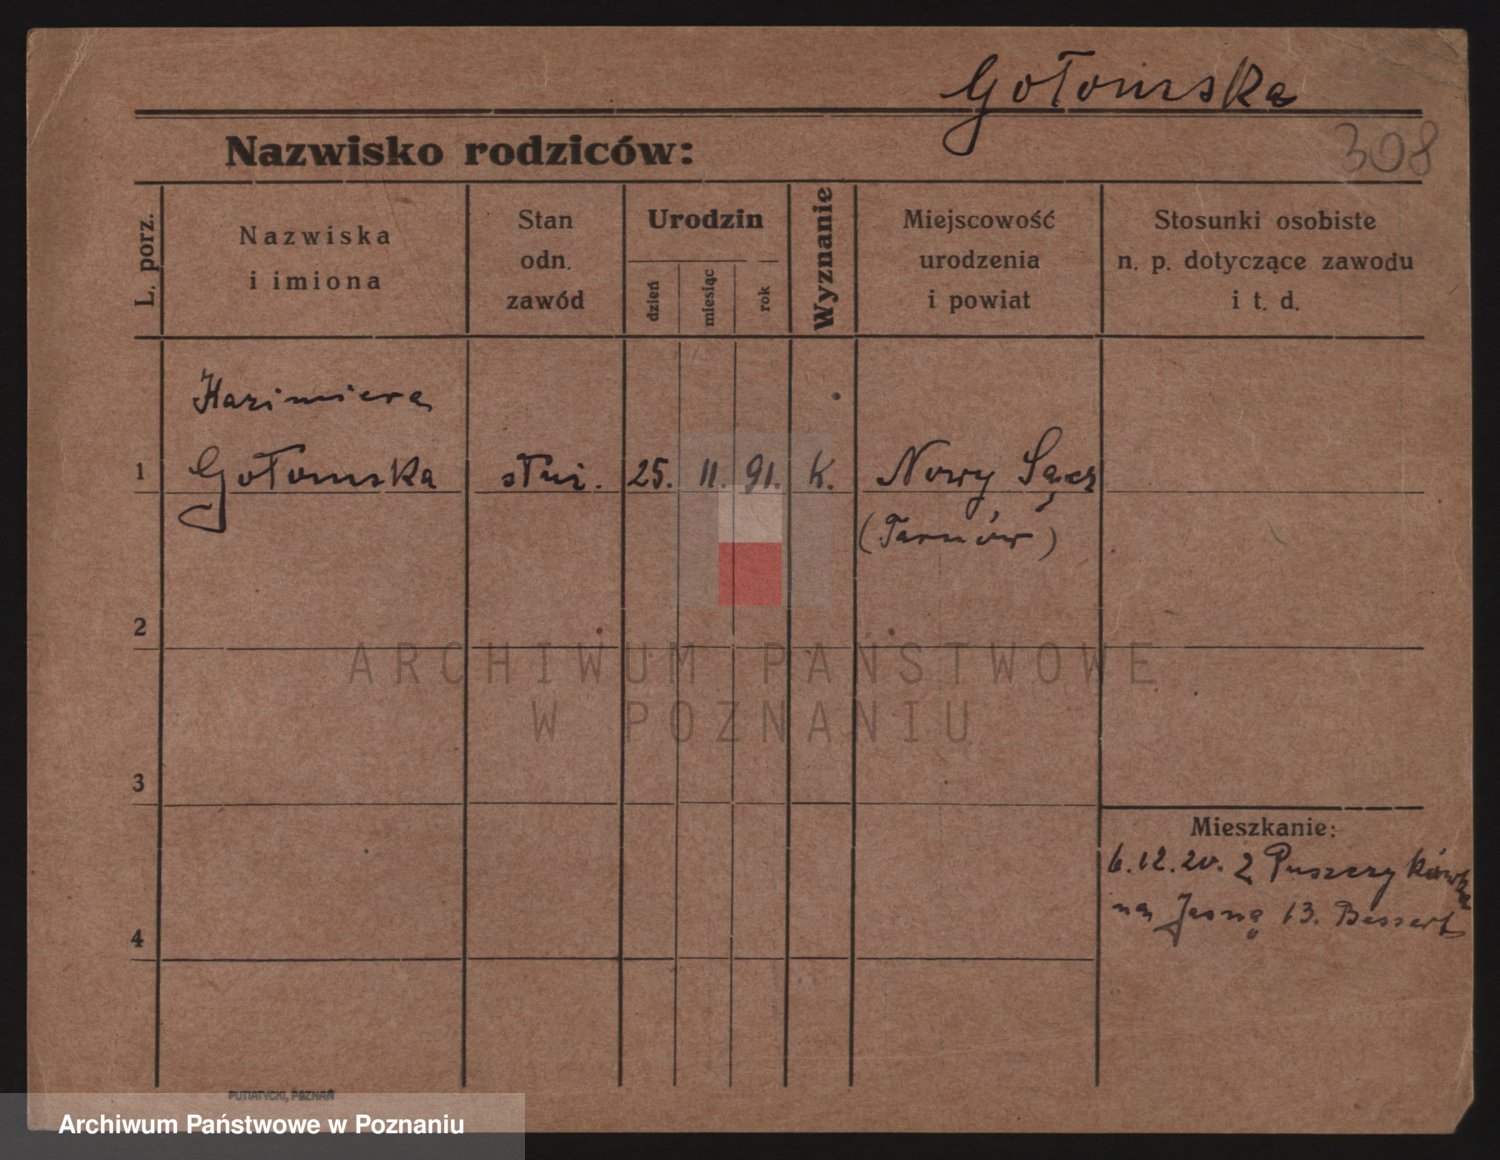 Gołomska
308
Nazwisko rodziców:
L. porz.
Nazwiska
i imiona
Stan
odn.
zawód
Urodzin
dzień
miesiąc
rok
Wyznanie
Miejscowość
urodzenia
i powiat
Stosunki osobiste
n. p. dotyczące zawodu
i t. d.
Kazimiera
1 Gołomska służ. 25. 11. 91. K. Nowy Sącz
(Tarnów)
2
ARCHIWUM PAŃSTWOWE
W POZNANIU
3
Mieszkanie:
6.12.20. z Puszczykówka
na Jasną 13. Bessert
4
PUTIATYCKI, POZNAŃ
Archiwum Państwowe w Poznaniu